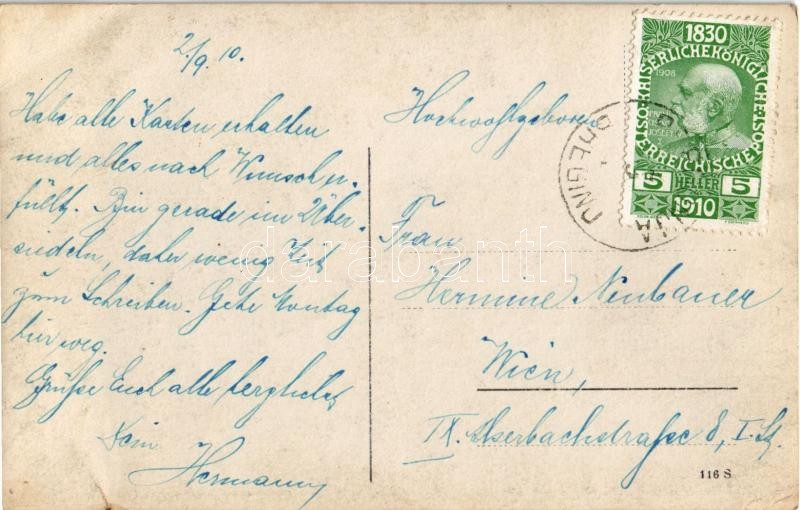 2./9. 10.
Habe alle Karten erhalten
und alles nach Wunsch er-
füllt. Bin gerade im Über-
siedeln, daher wenig Zeit
zum Schreiben. Gehe Montag
hier weg.
Grüße Euch alle herzlichst
Dein
Hermann
Hochwohlgeboren
Frau
Hermine Neubauer
Wien,
IX. Alserbachstraße 8, I. St.
116 S
1830
KAISERLICHE KÖNIGLICHE ÖSTERREICHISCHE POST
1908
5 HELLER 5
1910
darabanth